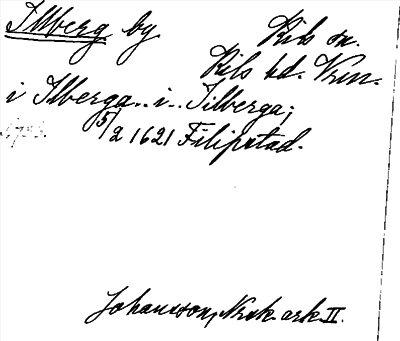 Illberg by Kils sn.
Kils hd. Vrm.
i Ilberga.. i.. Jilberga;
5/2 1621 Filipstad.
Johansson, Nrk ark II.